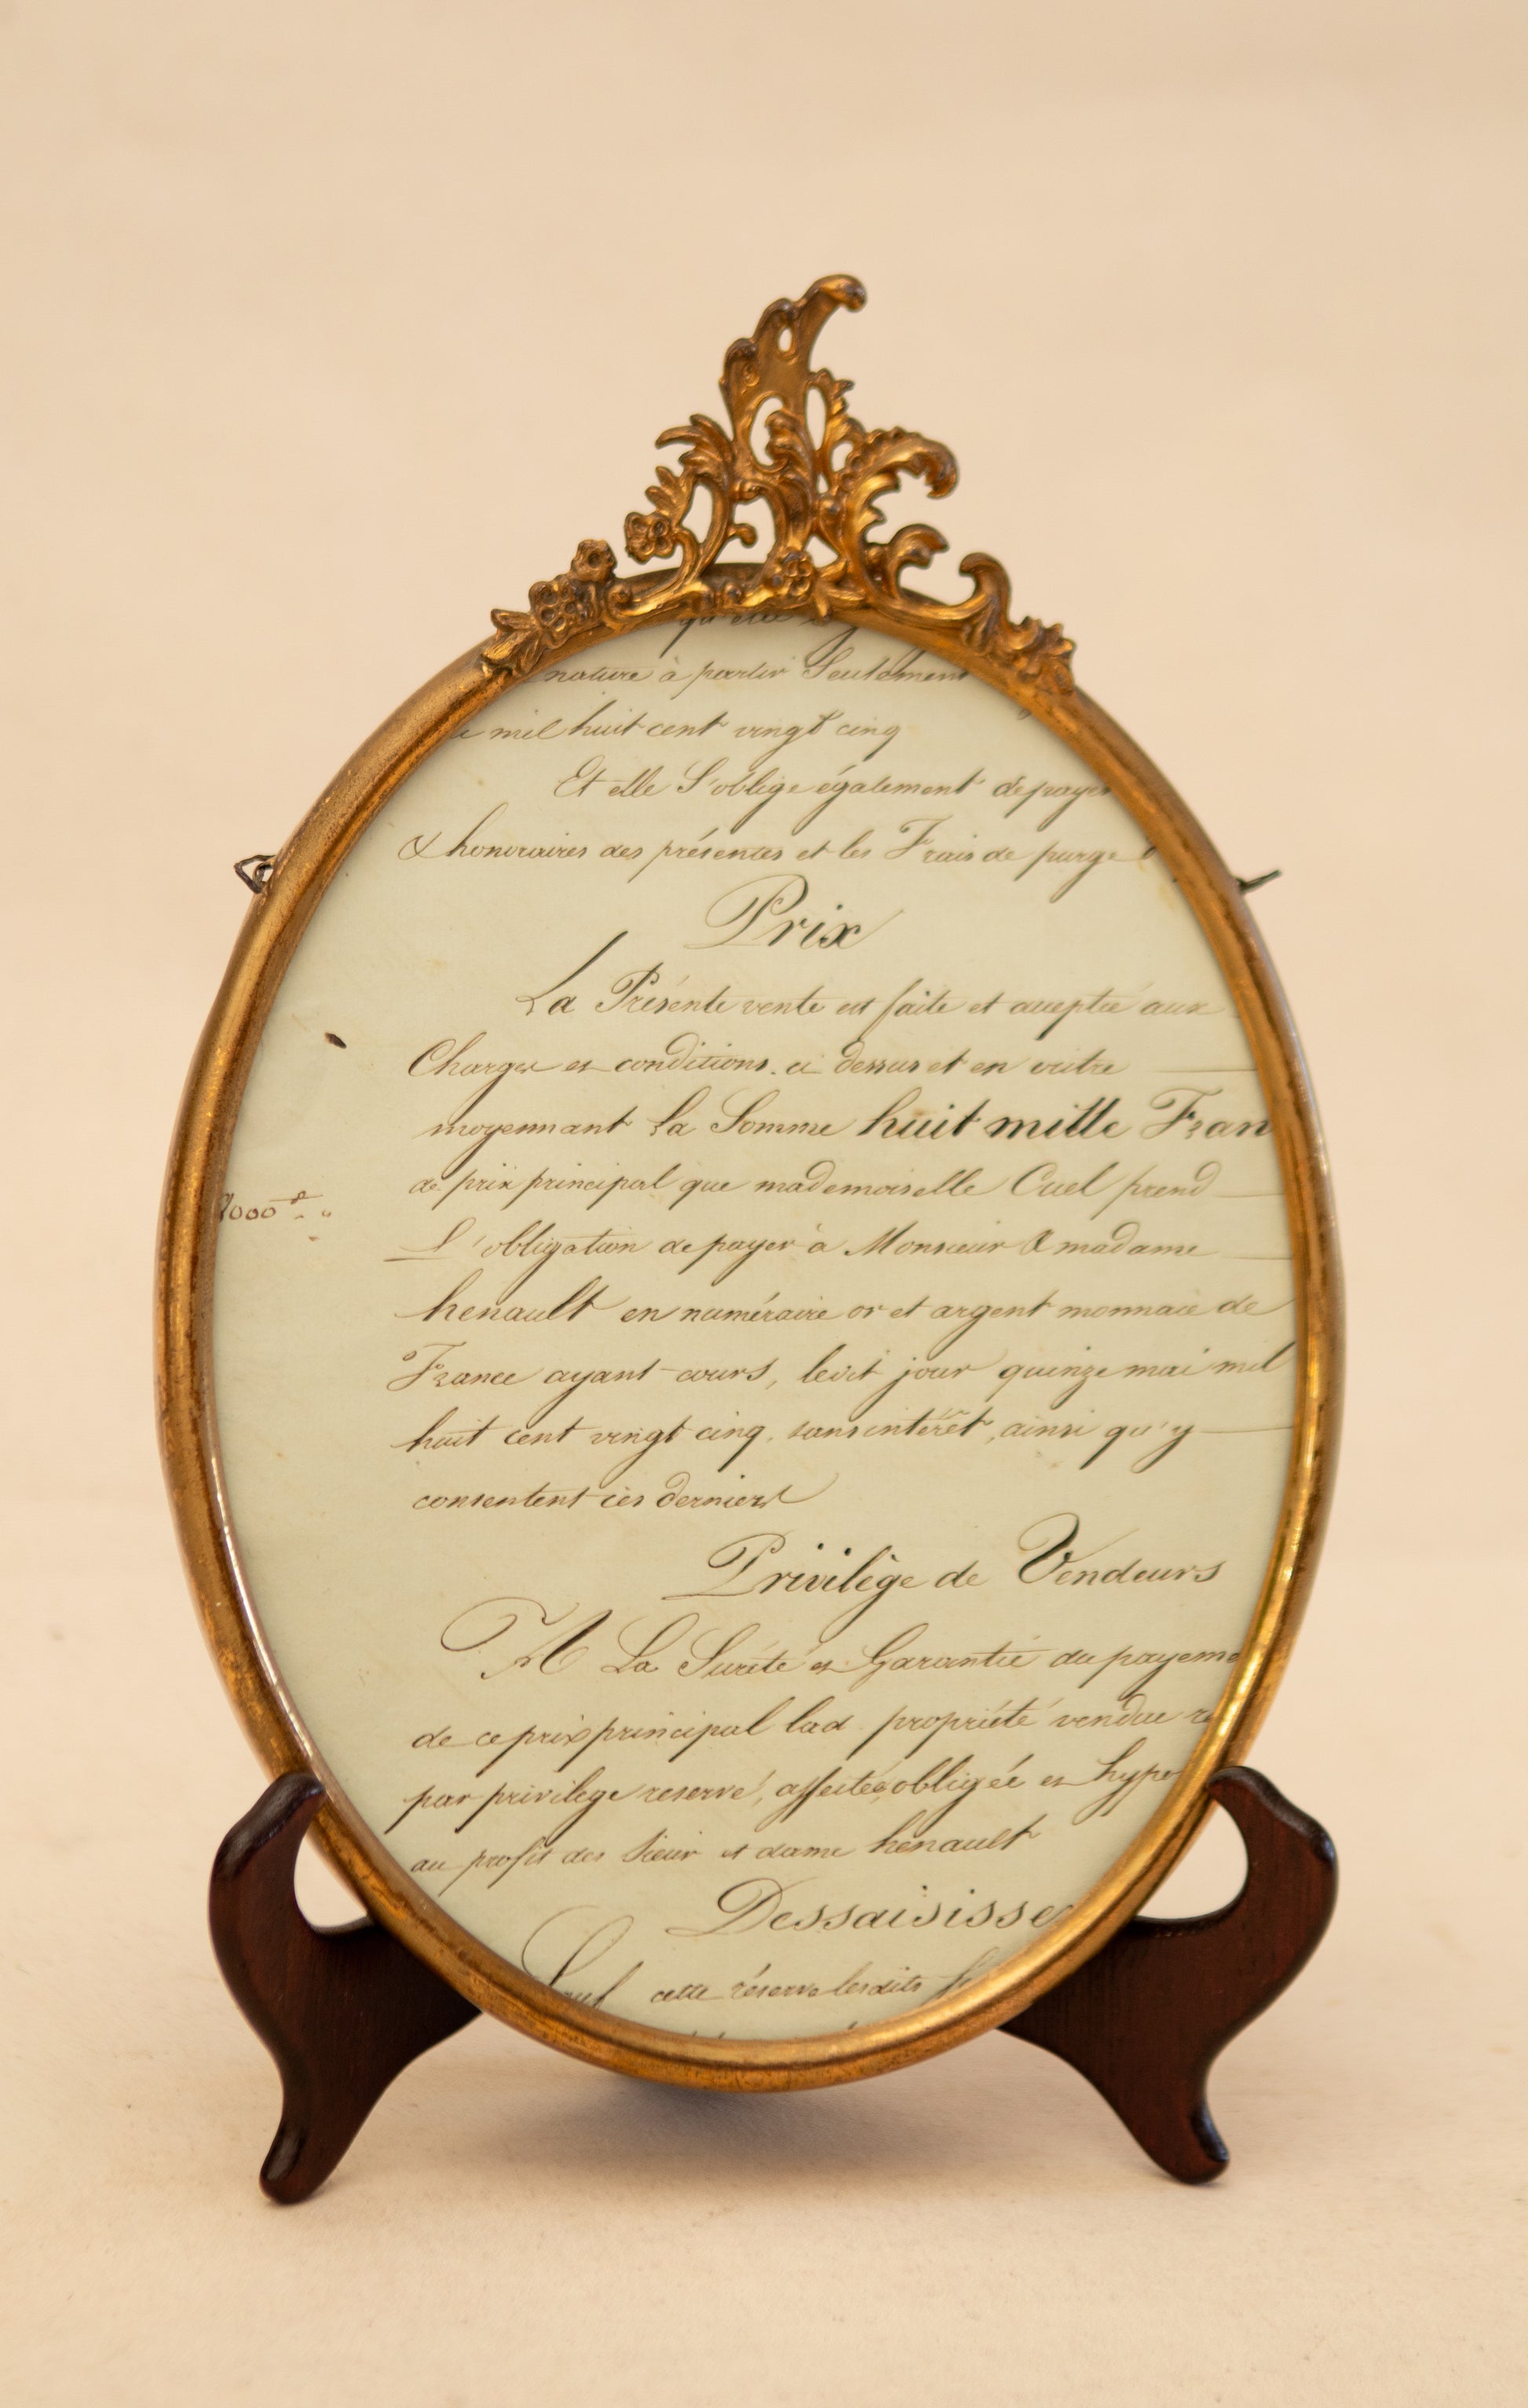 qu'elle
nature à partir Seulement
mil huit cent vingt cinq
Et elle S'oblige également de payer
& honoraires des présentes et les Frais de purge
Prix
La Présente vente est faite et acceptée aux
Charges et conditions ci dessus et en outre
moyennant la Somme huit mille Fran
de prix principal que mademoiselle Cuel prend
l'obligation de payer à Monsieur & madame
henault en numéraire or et argent monnaie de
France ayant cours, ledit jour quinze mai mil
huit cent vingt cinq, sans intérêt, ainsi qu'y
consentent ces derniers
Privilège de Vendeurs
A La Sureté et Garantie du payeme
de ce prix principal lad. propriété vendue
par privilege reservé, affectée obligée et hypo
au profit des Sieur et dame henault
Dessaisisse
Sauf cette réserve lesdits